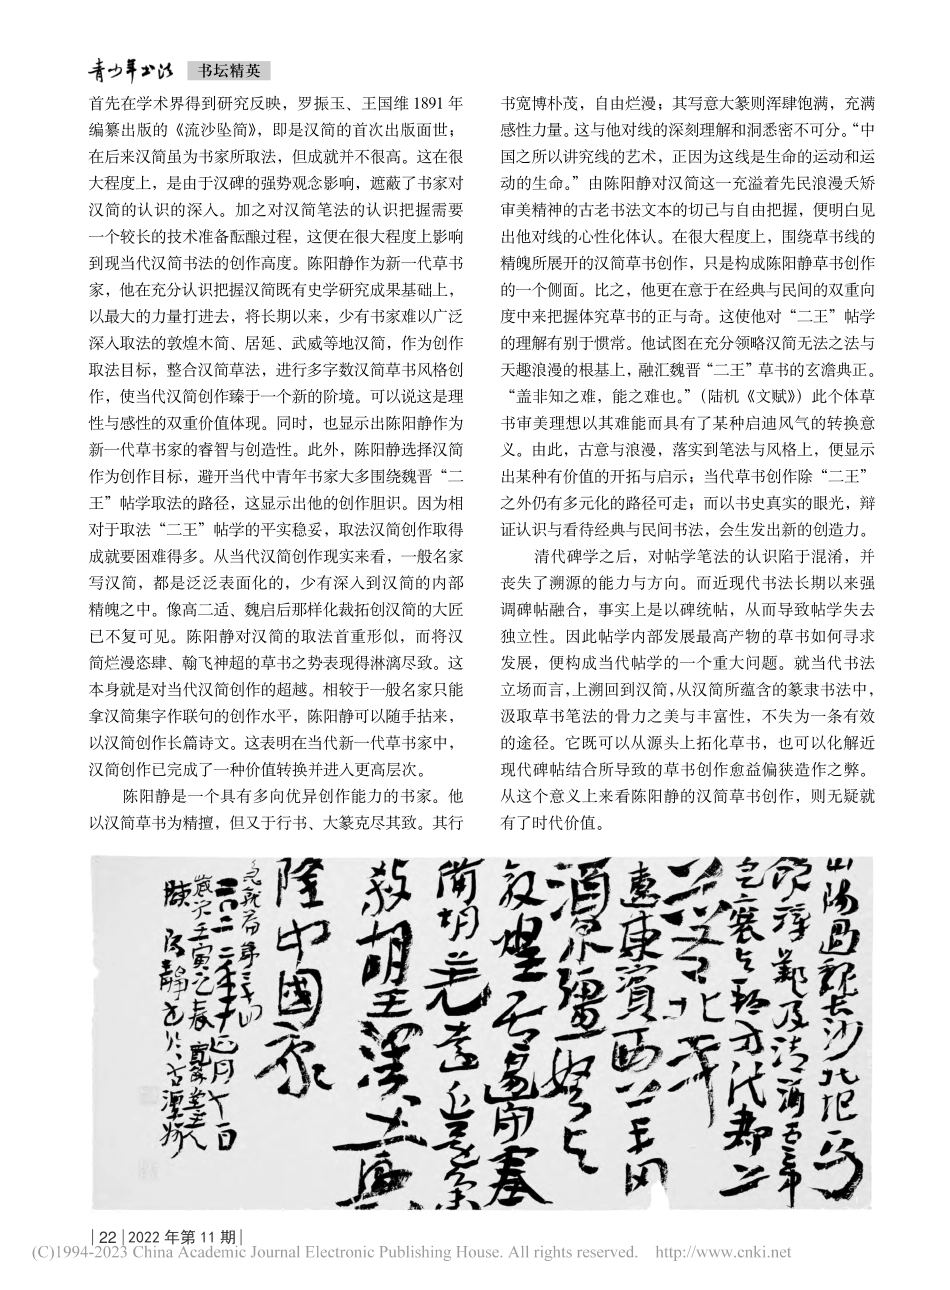 青少年书法 书坛精英
首先在学术界得到研究反映，罗振玉、王国维 1891 年
编纂出版的《流沙坠简》，即是汉简的首次出版面世；
在后来汉简虽为书家所取法，但成就并不很高。这在很
大程度上，是由于汉碑的强势观念影响，遮蔽了书家对
汉简的认识的深入。加之对汉简笔法的认识把握需要
一个较长的技术准备酝酿过程，这便在很大程度上影响
到现当代汉简书法的创作高度。陈阳静作为新一代草书
家，他在充分认识把握汉简既有史学研究成果基础上，
以最大的力量打进去，将长期以来，少有书家难以广泛
深入取法的敦煌木简、居延、武威等地汉简，作为创作
取法目标，整合汉简草法，进行多字数汉简草书风格创
作，使当代汉简创作臻于一个新的阶境。可以说这是理
性与感性的双重价值体现。同时，也显示出陈阳静作为
新一代草书家的睿智与创造性。此外，陈阳静选择汉简
作为创作目标，避开当代中青年书家大多围绕魏晋“二
王”帖学取法的路径，这显示出他的创作胆识。因为相
对于取法“二王”帖学的平实稳妥，取法汉简创作取得
成就要困难得多。从当代汉简创作现实来看，一般名家
写汉简，都是泛泛表面化的，少有深入到汉简的内部
精魄之中。像高二适、魏启后那样化裁拓创汉简的大匠
已不复可见。陈阳静对汉简的取法首重形似，而将汉
简烂漫恣肆、翰飞神超的草书之势表现得淋漓尽致。这
本身就是对当代汉简创作的超越。相较于一般名家只能
拿汉简集字作联句的创作水平，陈阳静可以随手拈来，
以汉简创作长篇诗文。这表明在当代新一代草书家中，
汉简创作已完成了一种价值转换并进入更高层次。
陈阳静是一个具有多向优异创作能力的书家。他
以汉简草书为精擅，但又于行书、大篆克尽其致。其行
书宽博朴茂，自由烂漫；其写意大篆则浑肆饱满，充满
感性力量。这与他对线的深刻理解和洞悉密不可分。“中
国之所以讲究线的艺术，正因为这线是生命的运动和运
动的生命。”由陈阳静对汉简这一充溢着先民浪漫夭矫
审美精神的古老书法文本的切己与自由把握，便明白见
出他对线的心性化体认。在很大程度上，围绕草书线的
精魄所展开的汉简草书创作，只是构成陈阳静草书创作
的一个侧面。比之，他更在意于在经典与民间的双重向
度中来把握体究草书的正与奇。这使他对“二王”帖学
的理解有别于惯常。他试图在充分领略汉简无法之法与
天趣浪漫的根基上，融汇魏晋“二王”草书的玄澹典正。
“盖非知之难，能之难也。”（陆机《文赋》）此个体草
书审美理想以其难能而具有了某种启迪风气的转换意
义。由此，古意与浪漫，落实到笔法与风格上，便显示
出某种有价值的开拓与启示；当代草书创作除“二王”
之外仍有多元化的路径可走；而以书史真实的眼光，辩
证认识与看待经典与民间书法，会生发出新的创造力。
清代碑学之后，对帖学笔法的认识陷于混淆，并
丧失了溯源的能力与方向。而近现代书法长期以来强
调碑帖融合，事实上是以碑统帖，从而导致帖学失去
独立性。因此帖学内部发展最高产物的草书如何寻求
发展，便构成当代帖学的一个重大问题。就当代书法
立场而言，上溯回到汉简，从汉简所蕴含的篆隶书法中，
汲取草书笔法的骨力之美与丰富性，不失为一条有效
的途径。它既可以从源头上拓化草书，也可以化解近
现代碑帖结合所导致的草书创作愈益偏狭造作之弊。
从这个意义上来看陈阳静的汉简草书创作，则无疑就
有了时代价值。
|22|2022 年第 11 期|
(C)1994-2023 China Academic Journal Electronic Publishing House. All rights reserved. http://www.cnki.net